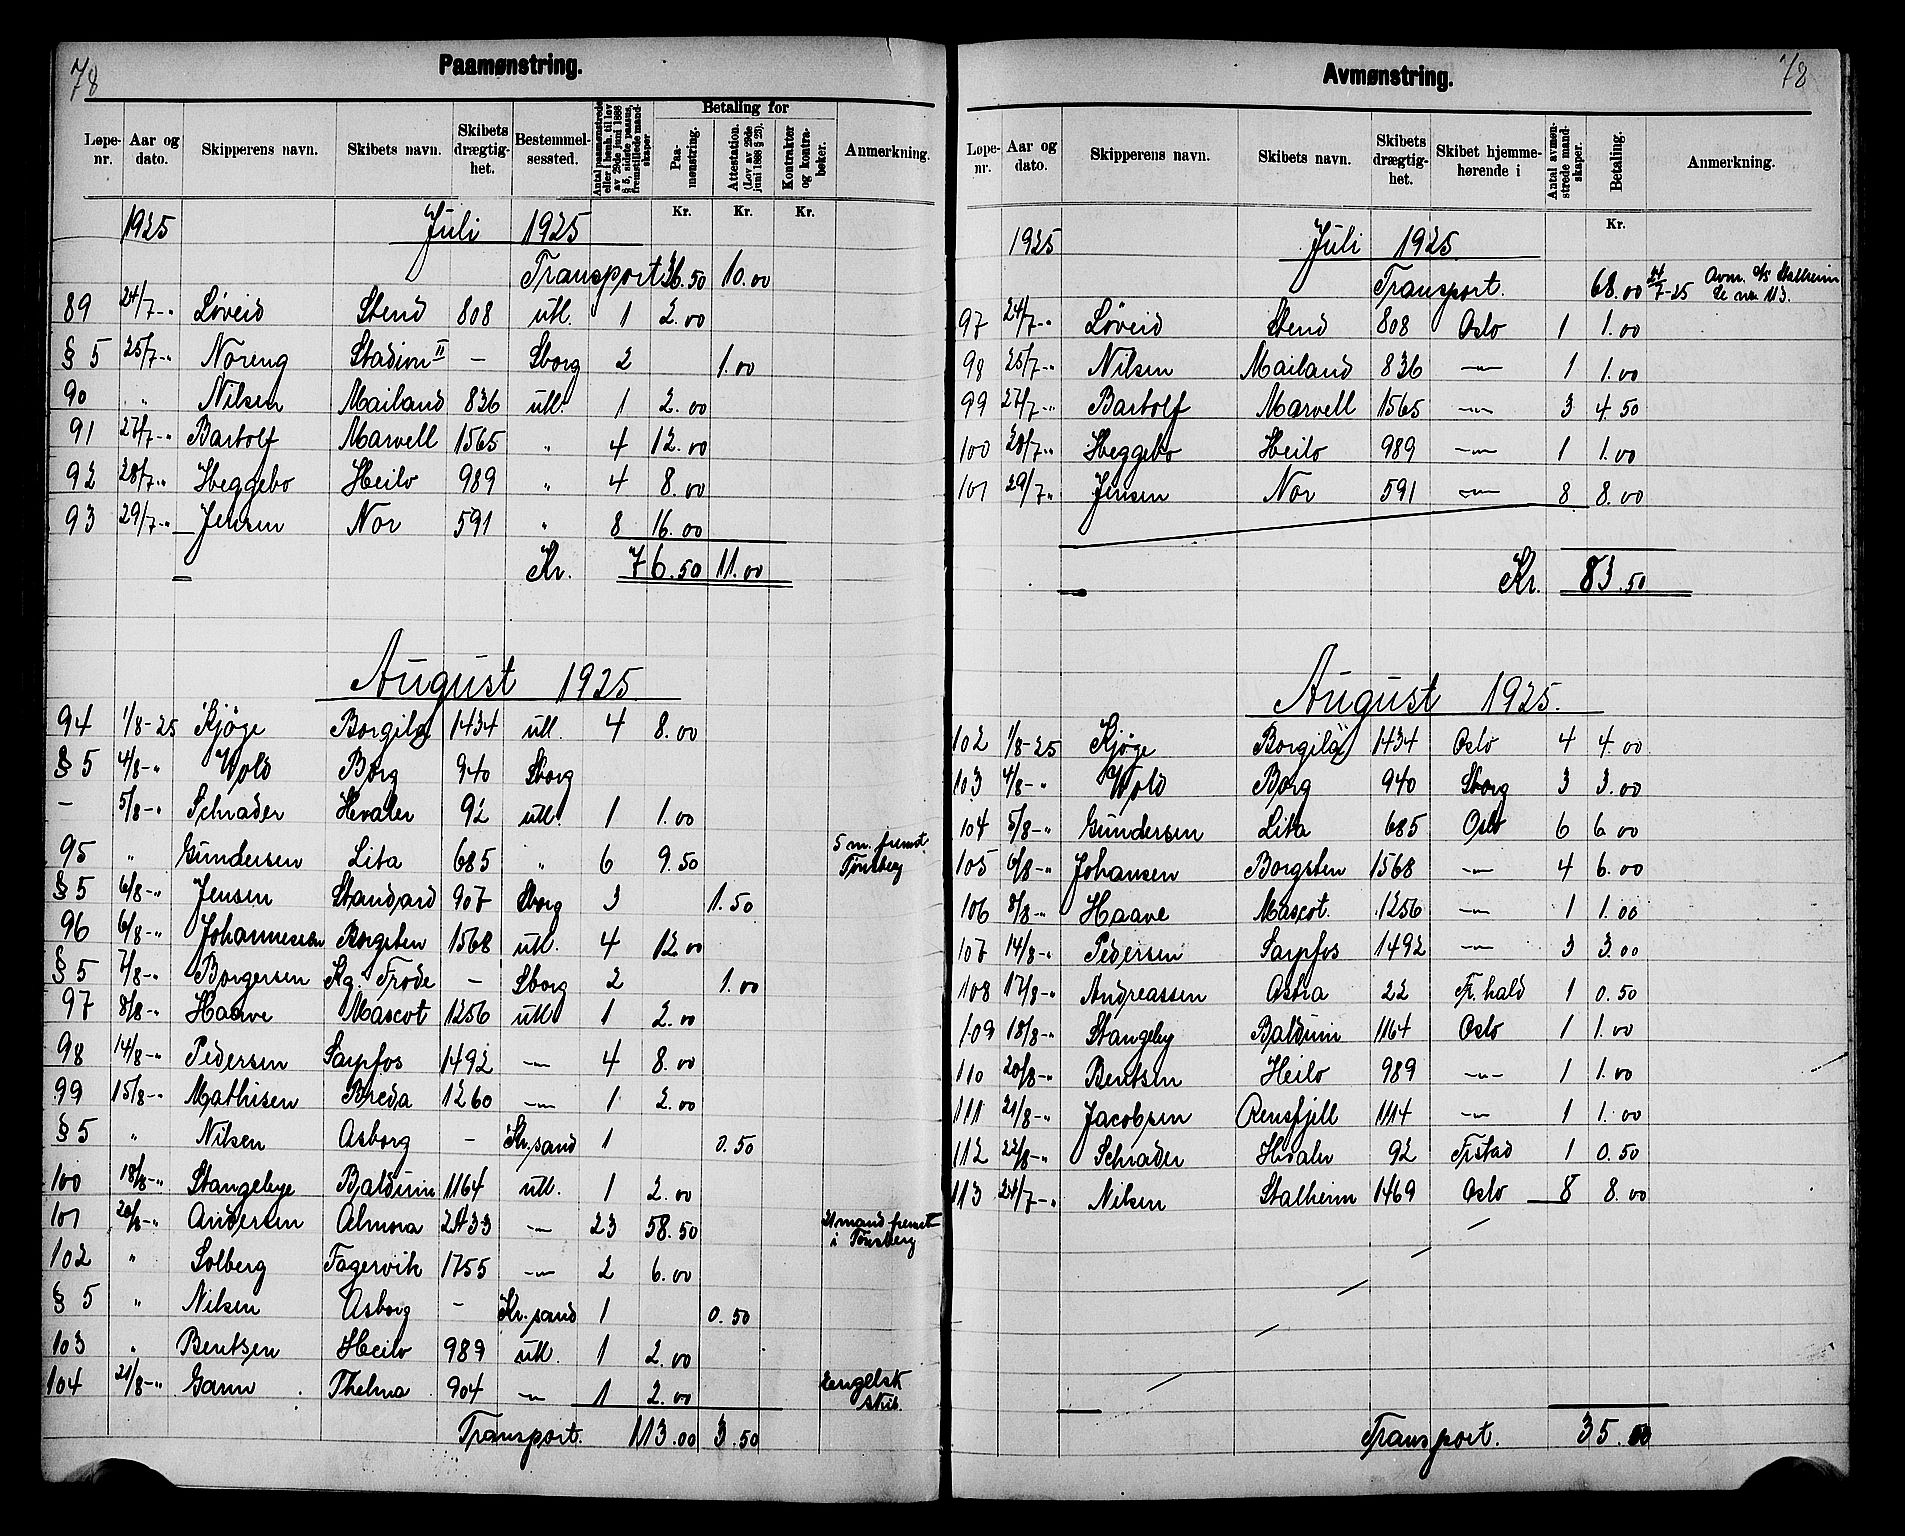 78
Paamønstring.
Løpe-nr. Aar og dato. Skipperens navn. Skibets navn. Skibets drægtig-het. Bestemmel-sessted. Antal paamønstrede eller i henh. til lov av 29de juni 1888 § 5, sidste passus, fremstillede mand-skaper Betaling for Paa-mønstring. Attestation. (Lov av 29de juni 1888 § 23). Kontrakter og kontra-bøker. Anmerkning.
Kr. Kr. Kr.
1925 Juli 1925
Transport 36.50 10.00
89 24/7-" Løveid Stend 808 utl. 1 2.00
§ 5 25/7-" Noreng Stadion II - Sborg 2 1.00
90 " Nilsen Mailand 836 utl. 1 2.00
91 27/7-" Bartolf Marvell 1565 " 4 12.00
92 28/7-" Heggebo Heilo 989 " 4 8.00
93 29/7-" Jensen Nor 591 " 8 16.00
Kr. 76.50 11.00
August 1925
94 1/8-25 Kjøge Borgila 1434 utl. 4 8.00
§ 5 4/8-" Wold Borg 940 Sborg
- 5/8-" Schrader Hvaler 92 utl. 1 1.00
95 " Gundersen Lita 685 " 6 9.50 5 m. fremst. Tønsberg
§ 5 6/8-" Jensen Standard 907 Sborg 3 1.50
96 6/8-" Johannessen Borgsten 1568 utl. 4 12.00
§ 5 7/8-" Borgersen Kg. Frode - Sborg 2 1.00
97 8/8-" Haave Mascot 1256 utl 1 2.00
98 14/8-" Pedersen Sarpfos 1492 -"- 4 8.00
99 15/8-" Mathisen Breda 1260 -"- 1 2.00
§ 5 " Nilsen Asborg - Kr.sand 1 0.50
100 18/8-" Stangebye Balduin 1164 utl. 1 2.00
101 20/8-" Andersen Almora 2433 -"- 23 58.50 21 mand fremst i Tønsberg
102 " Solberg Fagervik 1755 -"- 2 6.00
§ 5 " Nilsen Asborg - Kr.sand 1 0.50
103 " Bentsen Heilo 989 utl. 1 2.00
104 21/8-" Gann Thelma 904 -"- 1 2.00 engelsk skib.
Transport. 113.00 3.50
78
Avmønstring.
Løpe-nr. Aar og dato. Skipperens navn. Skibets navn. Skibets drægtig-het. Skibet hjemme-hørende i Antal avmøn-strede mand-skaper. Betaling. Anmerkning.
Kr.
1925 Juli 1925
Transport. 68.00 24/7-25 Avm. d/s Stalheim Se nr. 113.
97 24/7-" Løveid Stend 808 Oslo 1 1.00
98 25/7-" Nilsen Mailand 836 -"- 1 1.00
99 27/7-" Bartolf Marvell 1565 -"- 3 4.50
100 28/7-" Heggebo Heilo 989 -"- 1 1.00
101 29/7-" Jensen Nor 591 -"- 8 8.00
Kr. 83.50
August 1925.
102 1/8-25 Kjøge Borgila 1434 Oslo 4 4.00
103 4/8-" Wold Borg 940 Sborg 3 3.00
104 5/8-" Gundersen Lita 685 Oslo 6 6.00
105 6/8-" Johansen Borgsten 1568 -"- 4 6.00
106 8/8-" Haave Mascot. 1256 -"- 1 1.00
107 14/8-" Pedersen Sarpfos 1492 -"- 3 3.00
108 17/8-" Andreassen Astra 22 Fr.hald 1 0.50
109 18/8-" Stangeby Balduin 1164 Oslo 1 1.00
110 20/8-" Bentsen Heilo 989 -"- 1 1.00
111 21/8-" Jacobsen Rensfjell 1114 -"- 1 1.00
112 22/8-" Schrader Hvaler 92 Frstad 1 0.50
113 24/7-" Nilsen Stalheim 1469 Oslo 8 8.00
Transport. 35.00